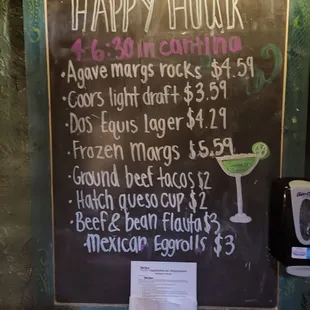 HAPPY HOUR
4-6:30 in cantina
· Agave margs rocks $4.59
· Coors light draft $3.59
· Dos Equis Lager $4.29
· Frozen Margs $5.59
· Ground beef tacos $2
· Hatch queso cup $2
· Beef & bean flauta $3
· Mexican Eggrolls $3